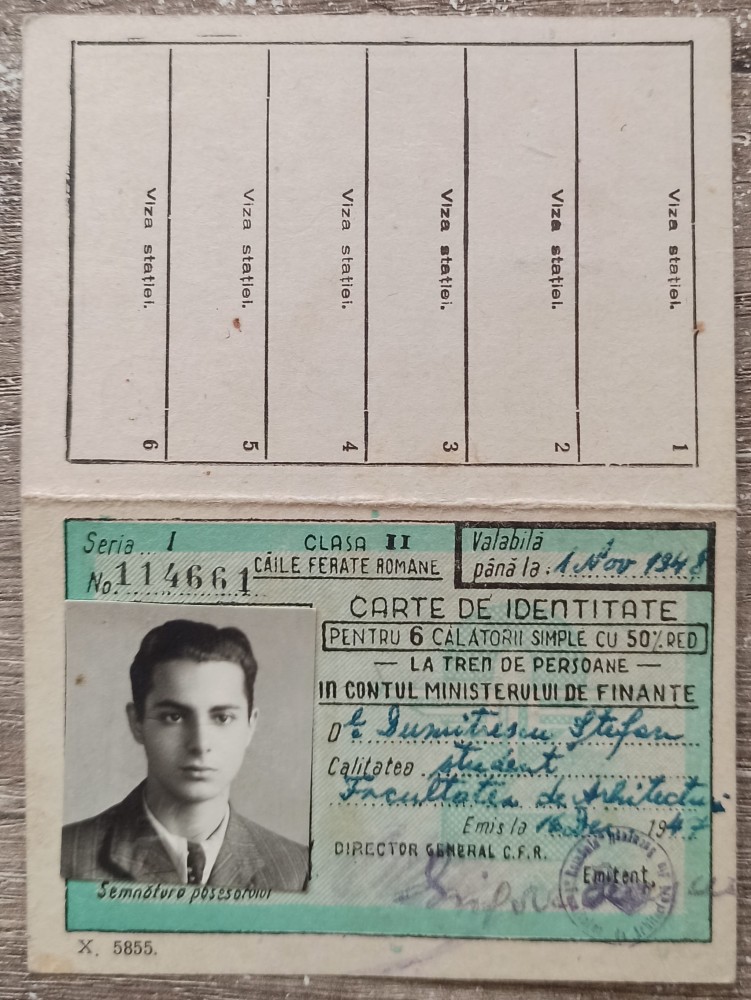 Viza stației. 1
Viza stației. 2
Viza stației. 3
Viza stației. 4
Viza stației. 5
Viza stației. 6
Seria I
No. 114661
CLASA II
CĂILE FERATE ROMANE
Valabilă
până la: 1 Nov 1948
CARTE DE IDENTITATE
PENTRU 6 CĂLĂTORII SIMPLE CU 50% RED
— LA TREN DE PERSOANE —
IN CONTUL MINISTERULUI DE FINANTE
Dl. Dumitrescu Ștefan
Calitatea student
Facultatea de Arhitectura
Emis la 16 Dec 1947
DIRECTOR GENERAL C.F.R.
Emitent,
Semnătura posesorului
X. 5855.